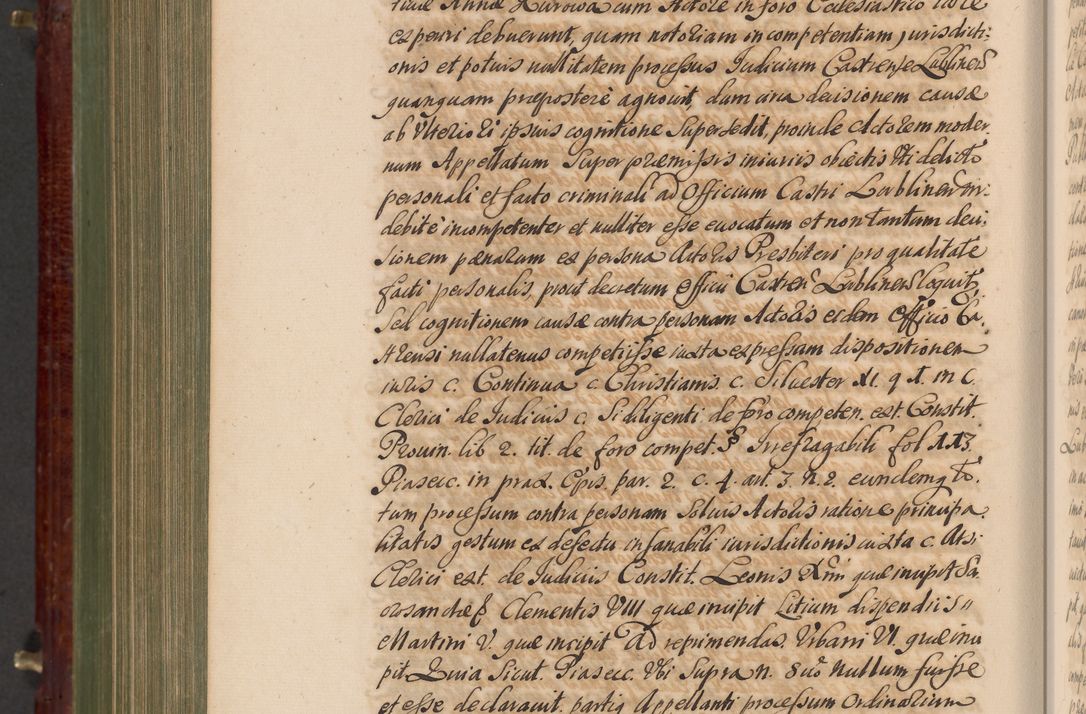 experiri debuerunt, quam notoriam incompetentiam jurisdicti:
onis et potius nullitatem processus Judicium Castrense Lublinen
quanquam præposterè agnovit, dum circa decisionem causæ
ab Ulteriori ipsius cognitione Supersedit, proinde Actorem moder
num Appellatum Super præmissis iniuriis obiectis Uti delicto
personali et facto criminali ad Officium Castri Lublinen in:
debitè incompetenter et nulliter esse evocatum et non tantum deci:
sionem pænarum ex persona Actoris Presbiteri pro qualitate
facti personalis, prout decretum Officii Castren Lublinen loquit,
Sed cognitionem causæ contra personam Actoris eidem Officio Ca.
strensi nullatenus competiisse iuxta expressam dispositionem
iuris c. Continua c. Christianis c. Silvester XI. q. I. in C.
Clerici de Judiciis c. Si diligenti de foro competen. ext. Constit.
Provin. lib 2. tit. de foro compet. § Irrefragabili fol 113.
Piasecc. in prax. Epis. par. 2. c. 4. art. 3. n. 2. eundemq to.
tum processum contra personam Solius Actoris ratione principa.
litatis gestum ex defectu insanabili iurisdictionis iuxta c. Atsi
Clerici ext. de Judiciis Constit. Leonis quæ incipit Sa
crosanctæ Clementis VIII quæ incipit Litium dispendiis
Martini V. quæ incipit Ad reprimendas. Urbani VI. quæ inci
pit Quia Sicut. Piasecc. Ubi Supra n. 8vo nullum fuisse
et esse declaravit. partis Appellanti processum Ordinarium